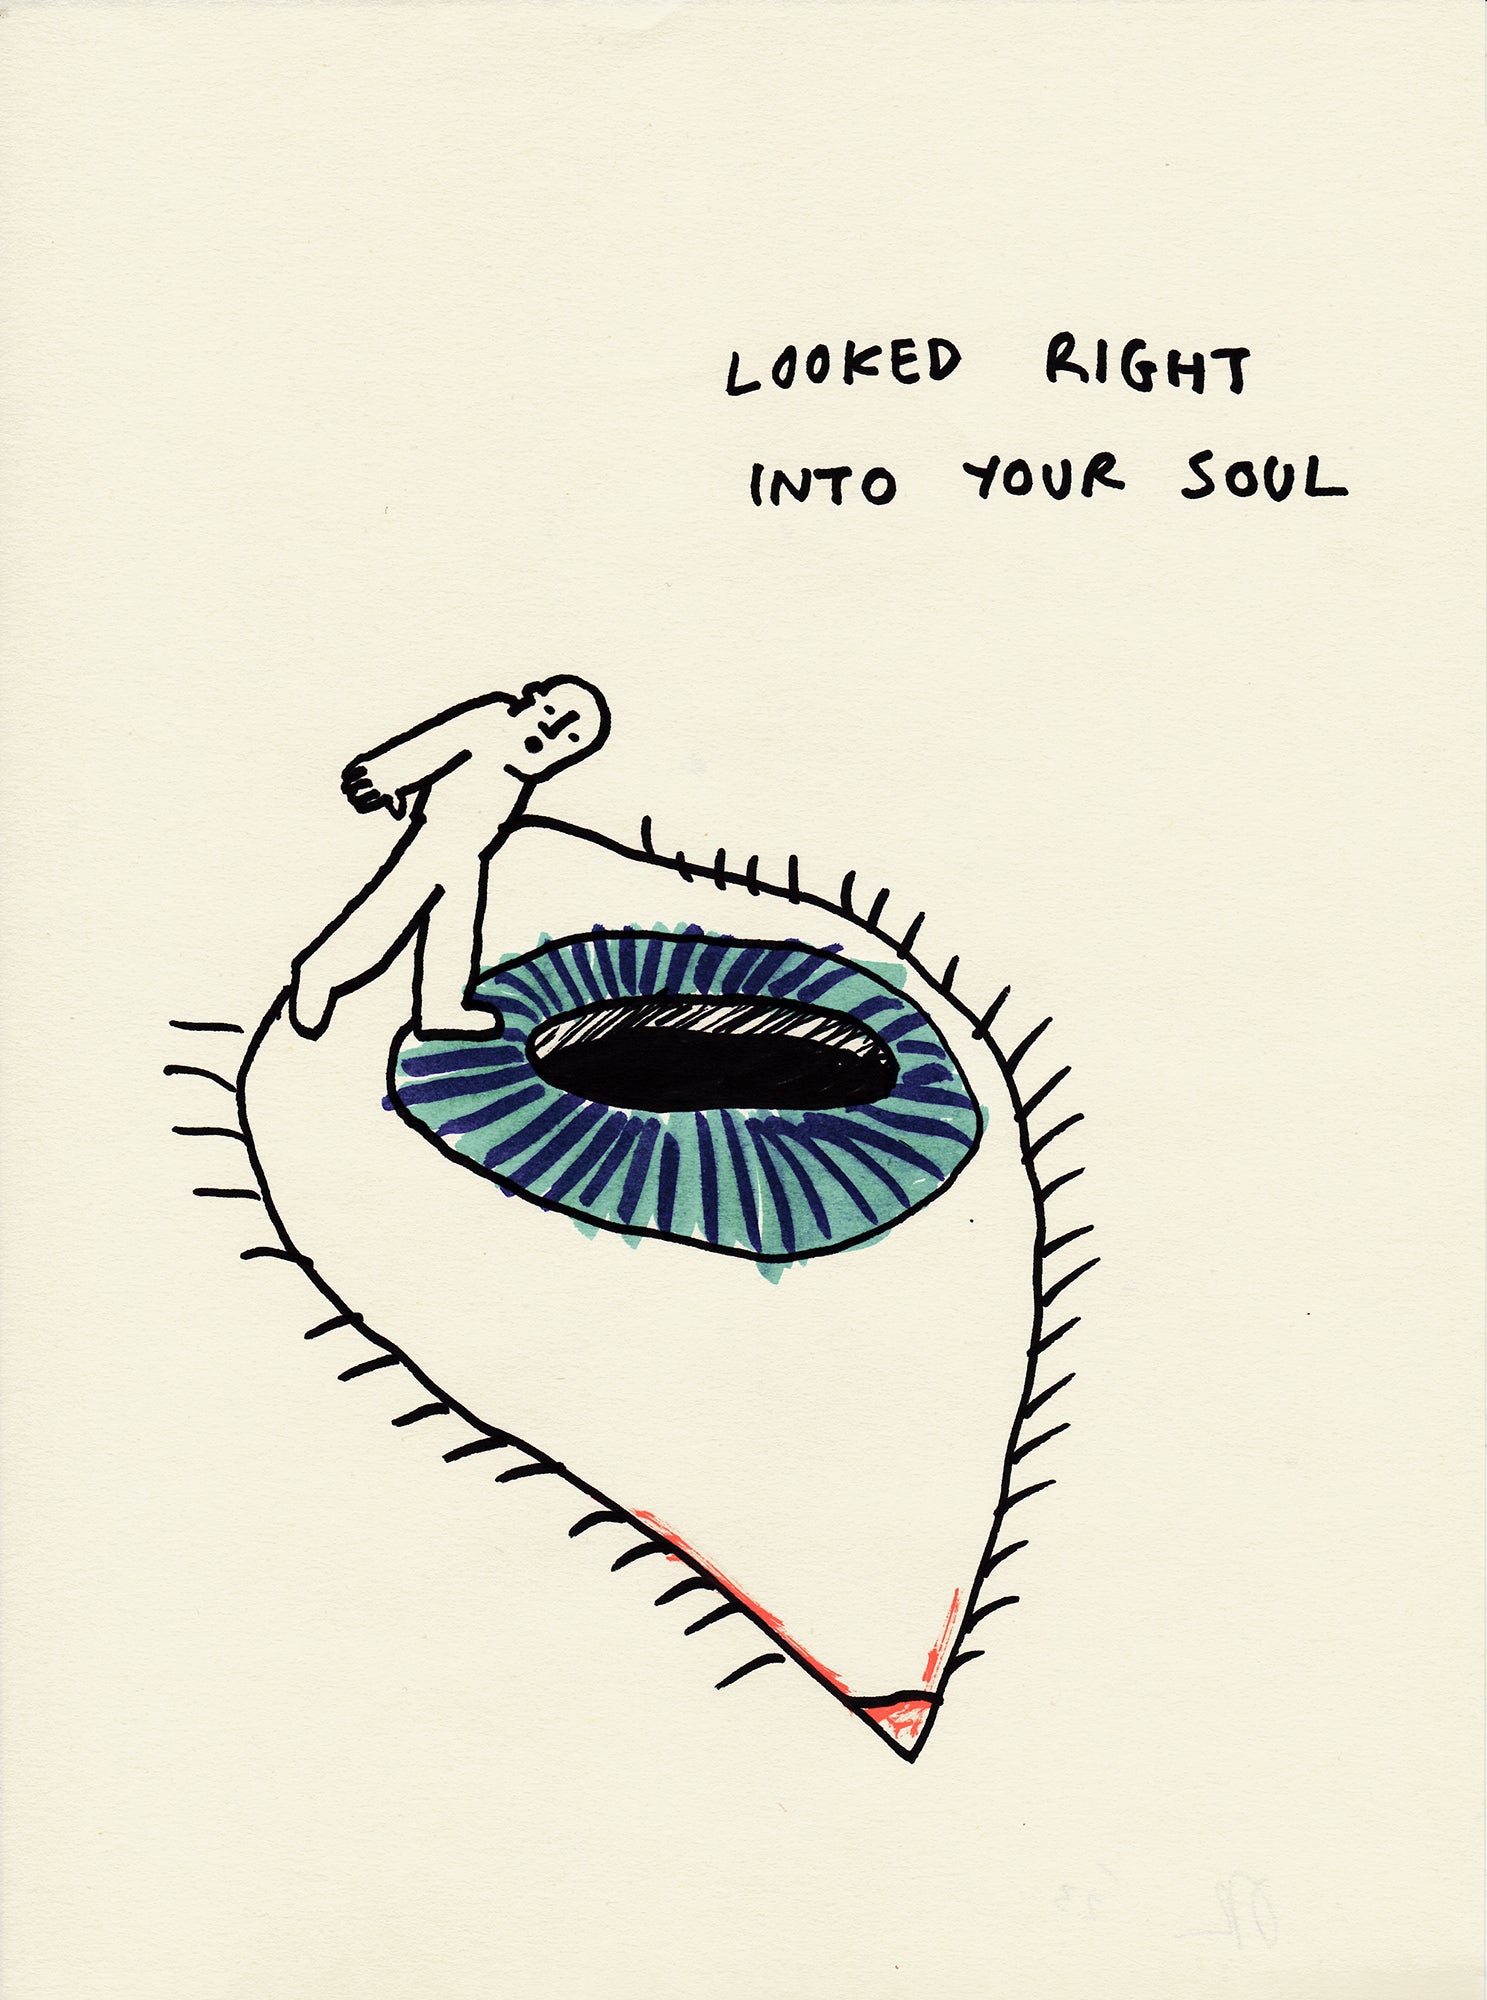 LOOKED RIGHT
INTO YOUR SOUL